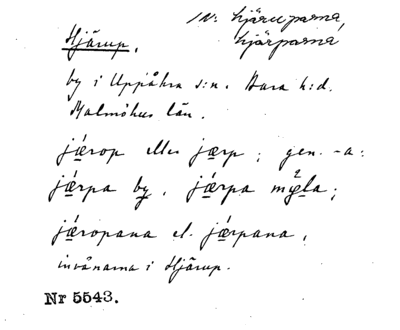 IN: hjäruparna,
hjärparna
Hjärup.
by i Uppåkra s:n. Bara h:d.
Malmöhus län.
jǽ̲rop eller jæ̲rp; gen. -a:
jǽ̲rpa by̲, jǽ̲rpa my̲la;
jǽ̲ropana el. jǽ̲rpana,
invånarna i Hjärup.
Nr 5543.